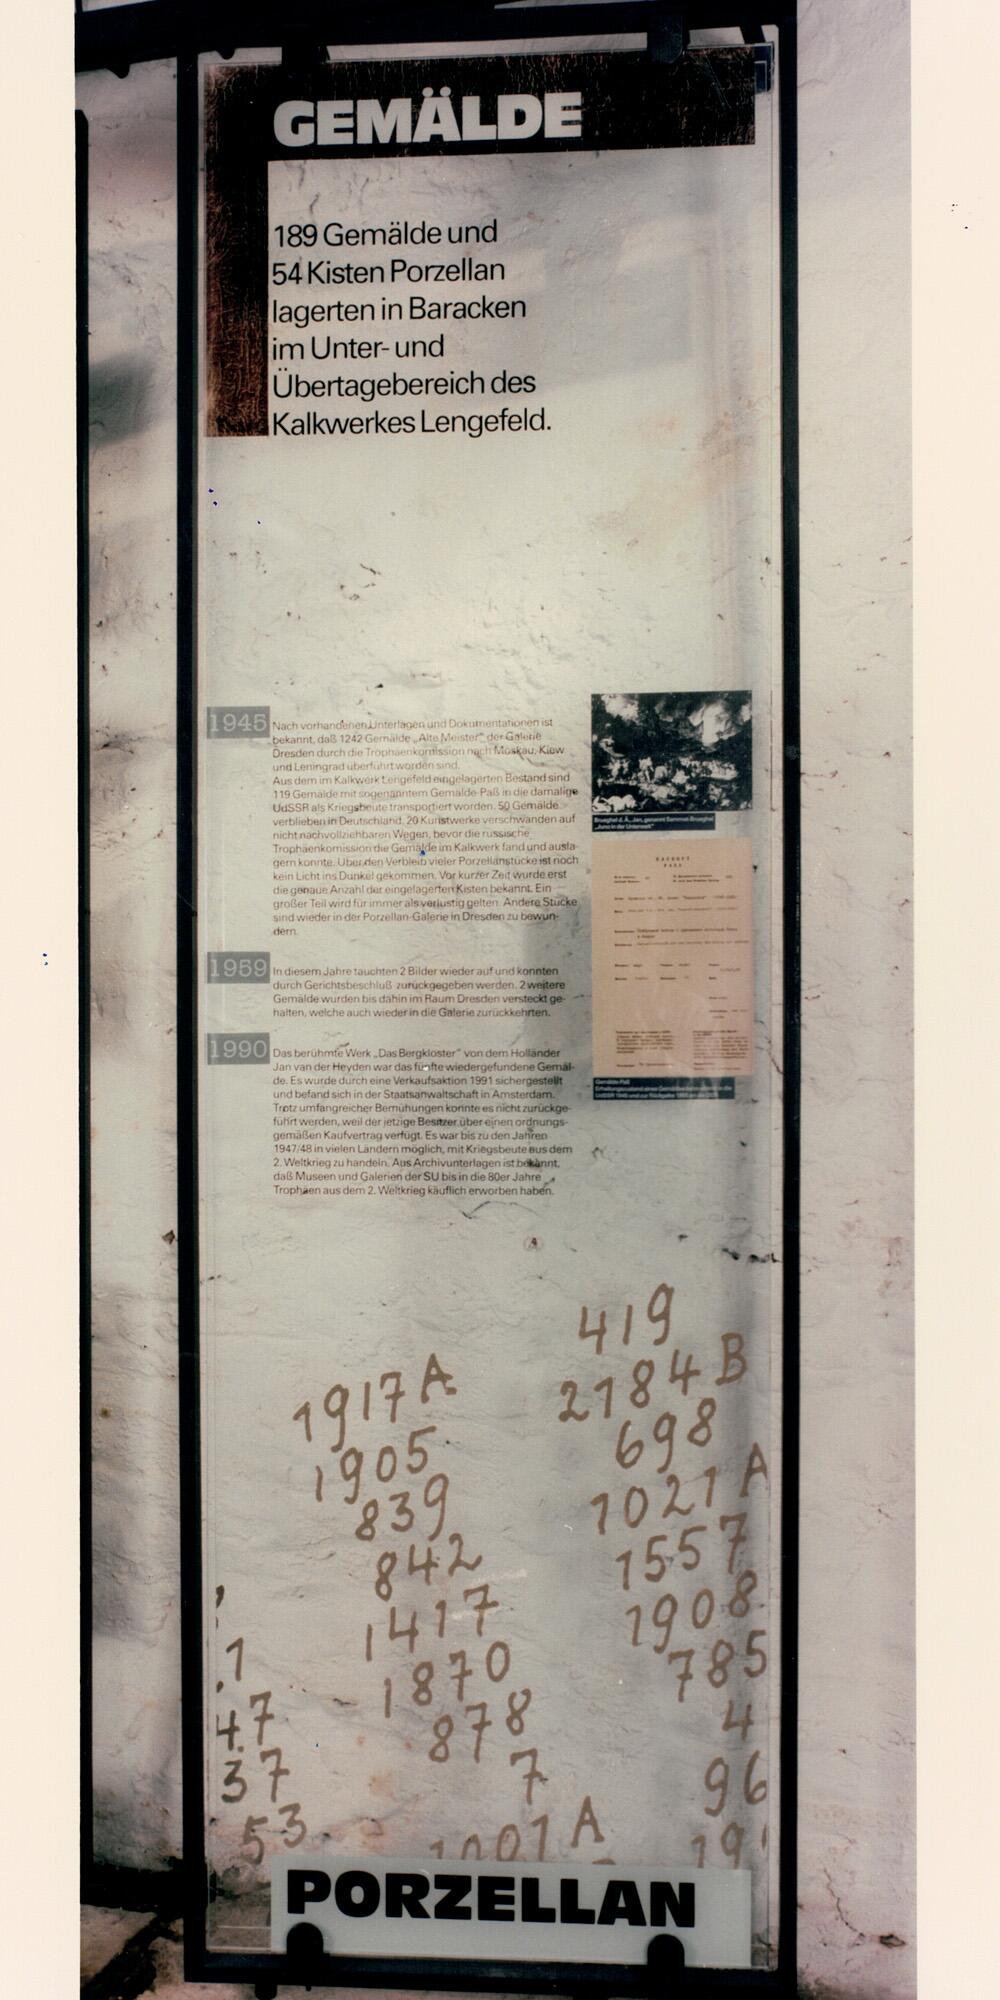 GEMÄLDE
189 Gemälde und
54 Kisten Porzellan
lagerten in Baracken
im Unter- und
Übertagebereich des
Kalkwerkes Lengefeld.
1945
Nach vorhandenen Unterlagen und Dokumentationen ist
bekannt, daß 1242 Gemälde „Alte Meister" der Galerie
Dresden durch die Trophäenkomission nach Moskau, Kiew
und Leningrad überführt worden sind.
Aus dem im Kalkwerk Lengefeld eingelagerten Bestand sind
119 Gemälde mit sogenanntem Gemälde-Paß in die damalige
UdSSR als Kriegsbeute transportiert worden. 50 Gemälde
verblieben in Deutschland. 20 Kunstwerke verschwanden auf
nicht nachvollziehbaren Wegen, bevor die russische
Trophäenkomission die Gemälde im Kalkwerk fand und ausla-
gern konnte. Über den Verbleib vieler Porzellanstücke ist noch
kein Licht ins Dunkel gekommen. Vor kurzer Zeit wurde erst
die genaue Anzahl der eingelagerten Kisten bekannt. Ein
großer Teil wird für immer als verlustig gelten. Andere Stücke
sind wieder in der Porzellan-Galerie in Dresden zu bewun-
dern.
Brueghel d. Ä., Jan, genannt Sammet-Brueghel
„Juno in der Unterwelt"
1959
In diesem Jahre tauchten 2 Bilder wieder auf und konnten
durch Gerichtsbeschluß zurückgegeben werden. 2 weitere
Gemälde wurden bis dahin im Raum Dresden versteckt ge-
halten, welche auch wieder in die Galerie zurückkehrten.
1990
Das berühmte Werk „Das Bergkloster" von dem Holländer
Jan van der Heyden war das fünfte wiedergefundene Gemäl-
de. Es wurde durch eine Verkaufsaktion 1991 sichergestellt
und befand sich in der Staatsanwaltschaft in Amsterdam.
Trotz umfangreicher Bemühungen konnte es nicht zurückge-
führt werden, weil der jetzige Besitzer über einen ordnungs-
gemäßen Kaufvertrag verfügt. Es war bis zu den Jahren
1947/48 in vielen Ländern möglich, mit Kriegsbeute aus dem
2. Weltkrieg zu handeln. Aus Archivunterlagen ist bekannt,
daß Museen und Galerien der SU bis in die 80er Jahre
Trophäen aus dem 2. Weltkrieg käuflich erworben haben.
Gemälde-Paß
1917 A
1905
839
842
1417
1870
878
7
1001 A
419
2184 B
698
1021 A
1557
1908
785
4
96
19
1
47
37
53
PORZELLAN